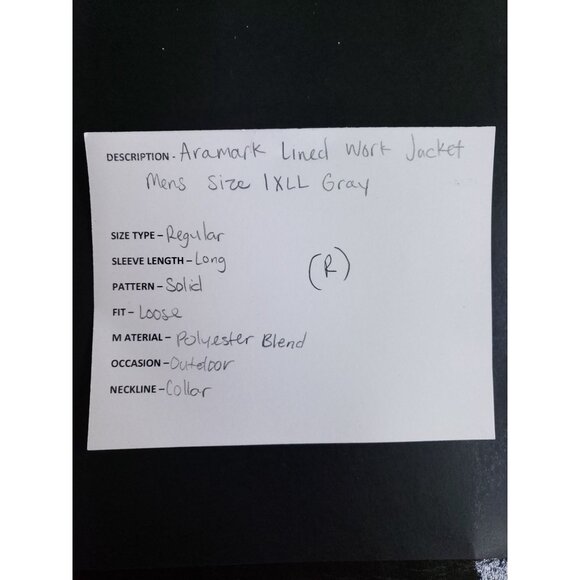 DESCRIPTION - Aramark Lined Work Jacket
Mens Size 1XLL Gray
SIZE TYPE – Regular
SLEEVE LENGTH – Long
(R)
PATTERN – Solid
FIT – Loose
M ATERIAL – Polyester Blend
OCCASION – Outdoor
NECKLINE – Collar